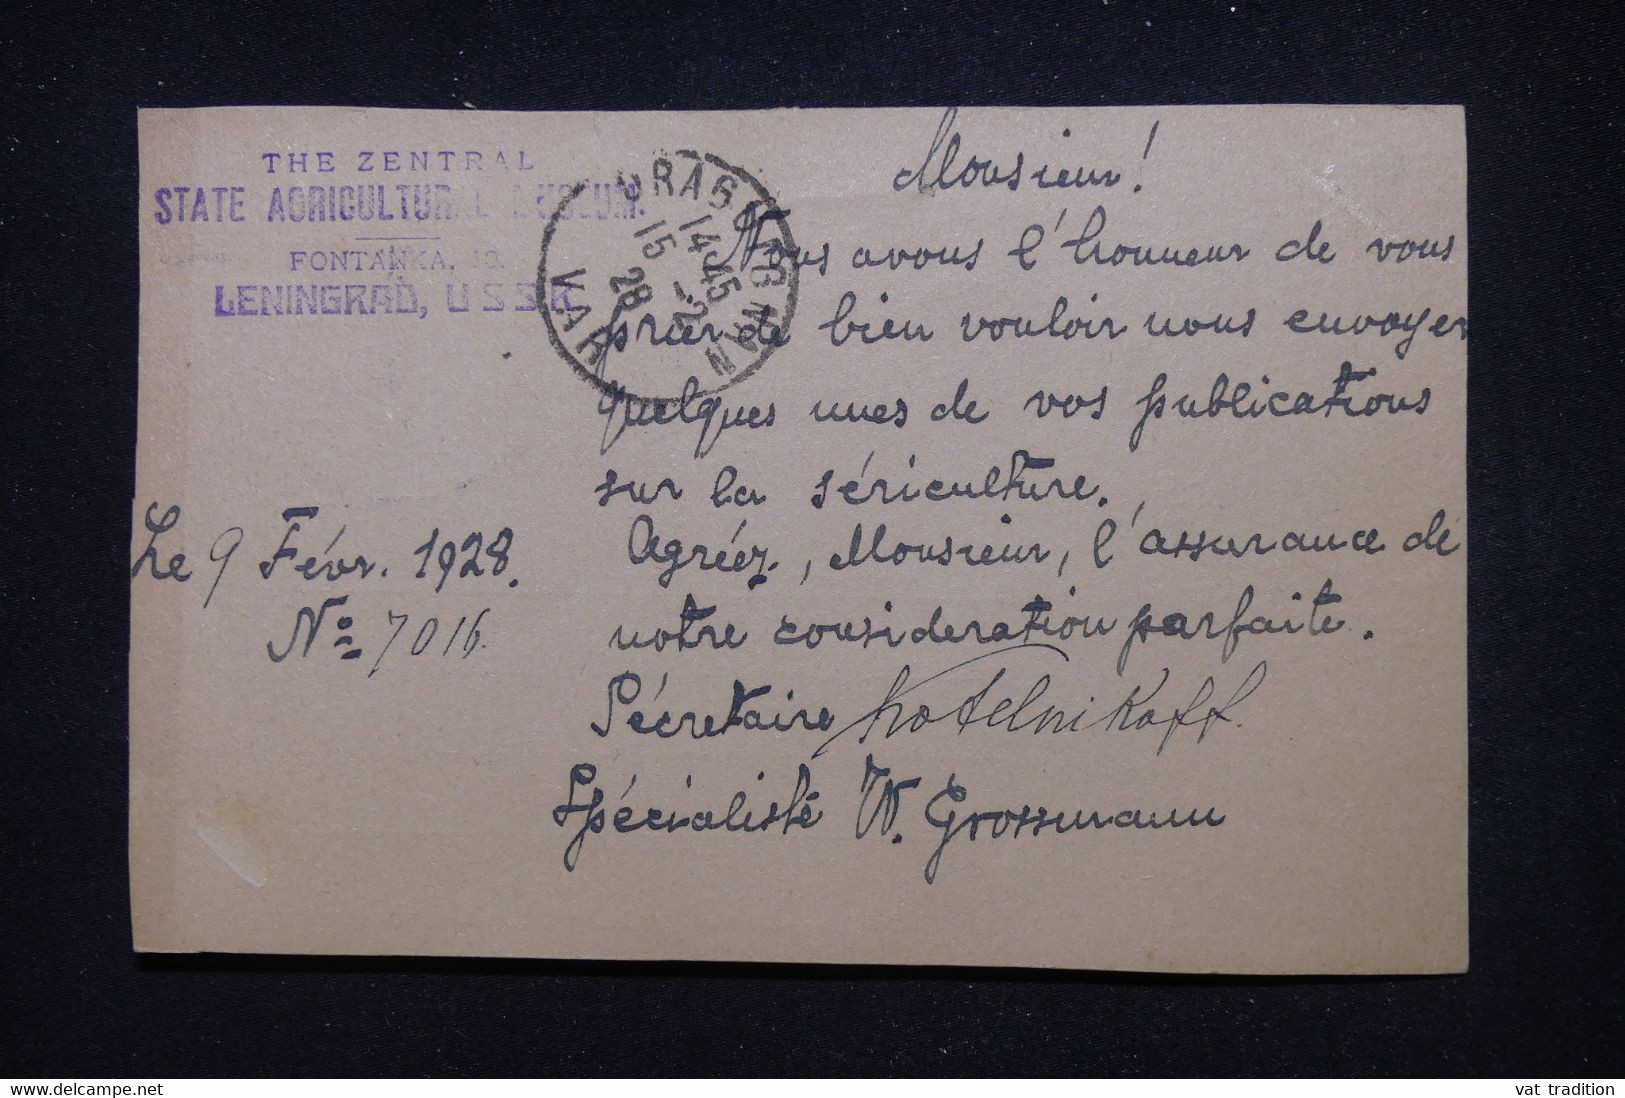 THE ZENTRAL
STATE AGRICULTURAL MUSEUM.
FONTANKA, 10.
LENINGRAD, USSR
DRAGUIGNAN
14 45
15 -2
28
VAR
Monsieur!
Nous avons l'honneur de vous
prier de bien vouloir nous envoyer
quelques unes de vos publications
sur la sériculture.
Le 9 Févr. 1928.
Agréez, Monsieur, l'assurance de
No 7016.
notre consideration parfaite.
Sécretaire Kotelnikoff.
Spécialisté W. Grossmann
vat tradition